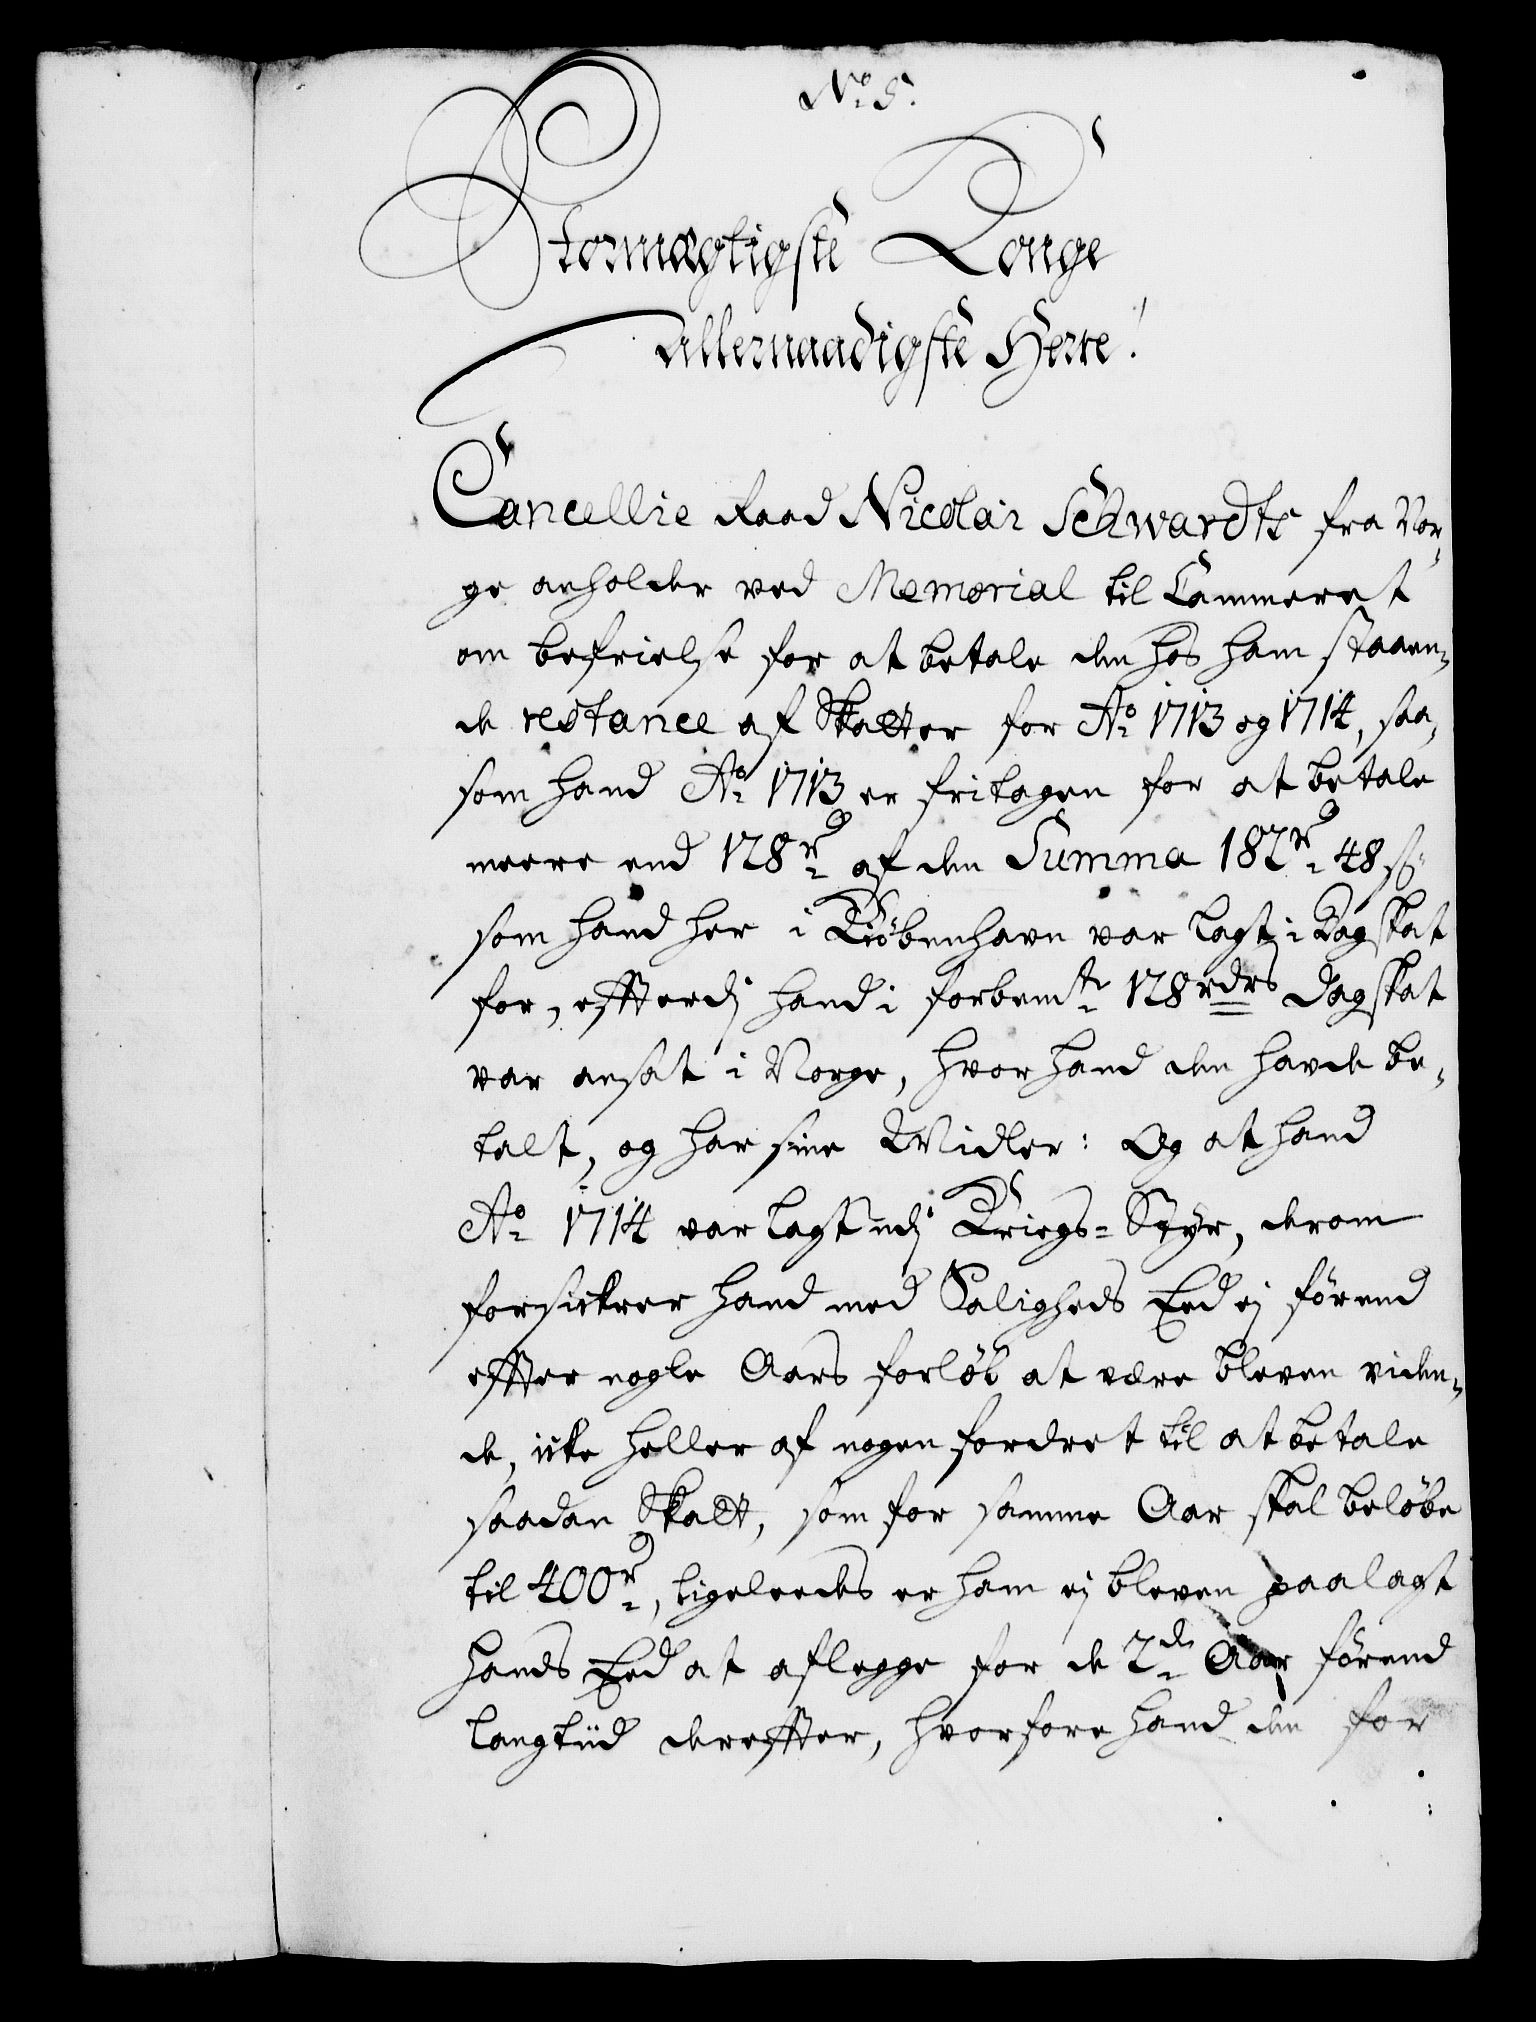 No. 5.
Stormægtigste Konge
Allernaadigste Herre!
Cancellie Raad Nicolai Schwardts fra Nor-
ge anholder ved Memorial til Cammeret
om befrielse for at betale den hos ham staaen-
de restance af Skatter for Ao. 1713 og 1714, saa-
som hand Ao. 1713 er fritagen for at betale
meere end 128 rd. af den Summa 182 rd. 48 ß
som hand her i Kiöbenhavn var lagt i Dagskat
for, effterdj hand i forbemte 128 rdrs Dagskat
var ansat i Norge, hvor hand den havde be-
talt, og har sine Midler: Og at hand
Ao. 1714 var lagt udj Kriegs-Styr, derom
forsickrer hand med Saligheds Eed ej förend
effter nogle Aars forlöb at være bleven viden-
de, icke heller af nogen fordret til at betale
saadan Skatt, som for samme Aar skal belöbe
til 400 rd., ligeleedes er ham ej bleven paalagt
hands Eed at aflegge for de 2de Aar förend
langtiid dereffter, hvorfore hand den for